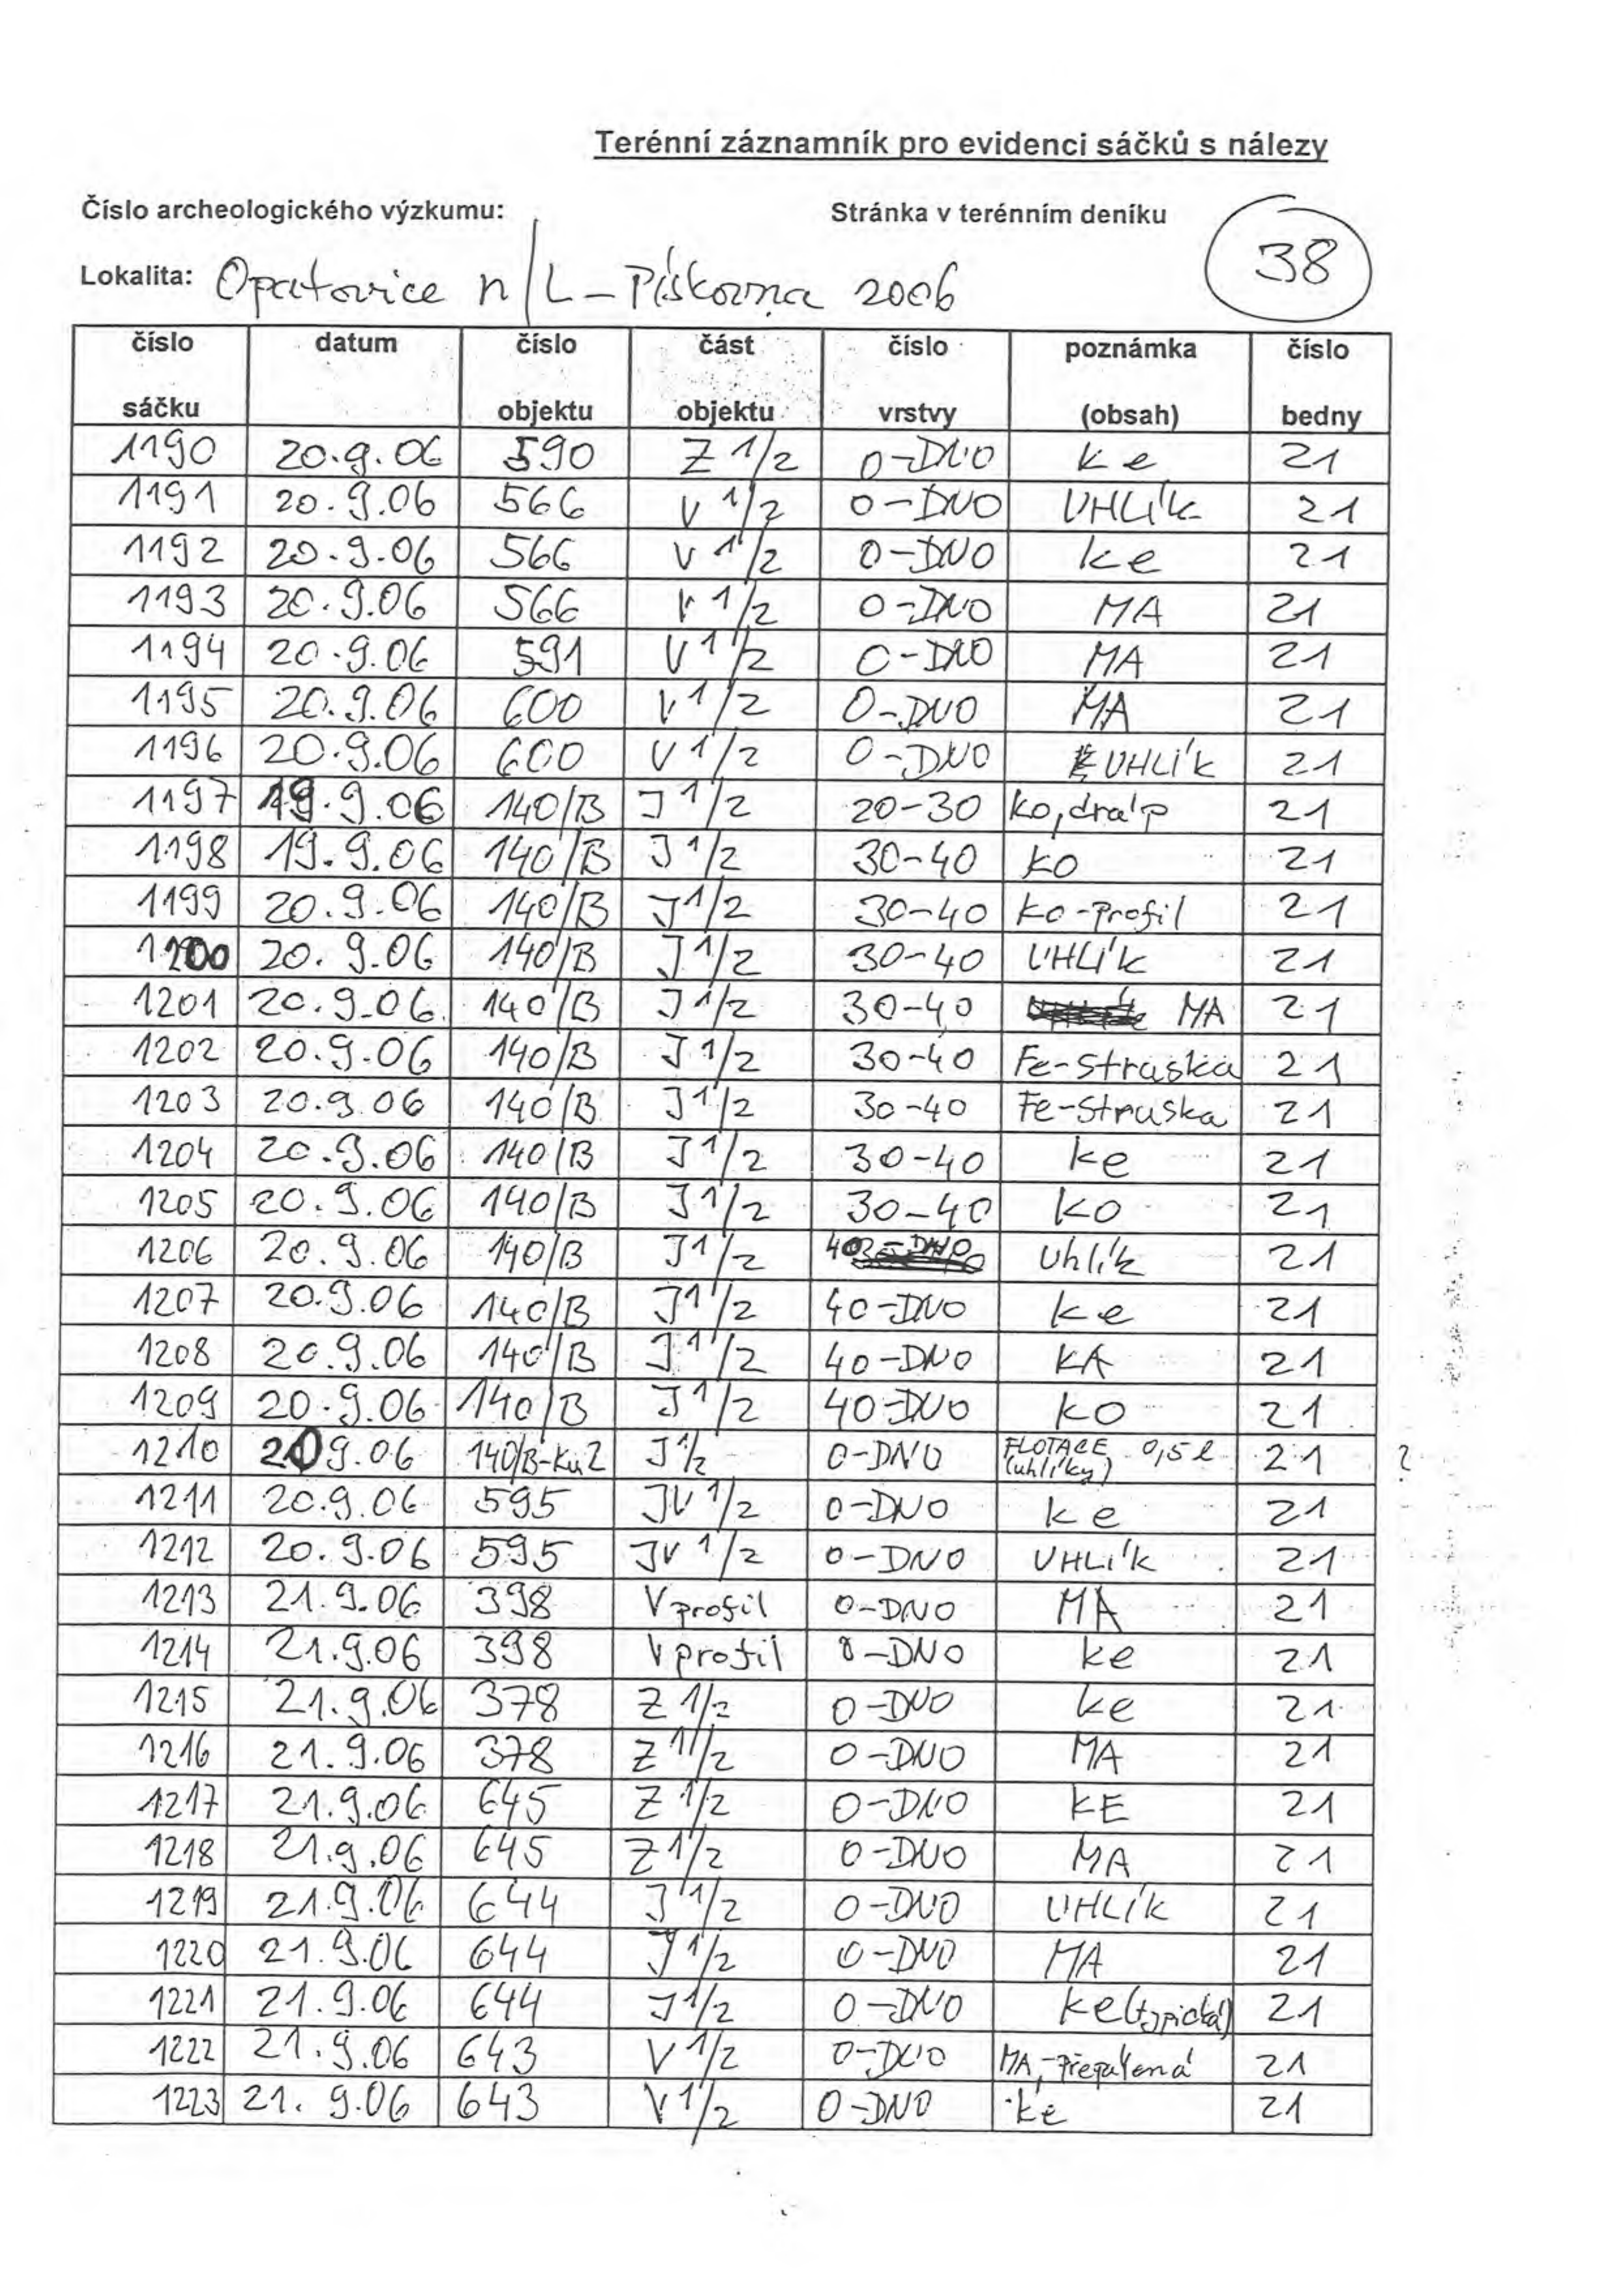 Terénní záznamník pro evidenci sáčků s nálezy
Číslo archeologického výzkumu: Stránka v terénním deníku 38
Lokalita: Opatovice n/L - Pískovna 2006
číslo sáčku datum číslo objektu část objektu číslo vrstvy poznámka (obsah) číslo bedny
1190 20.9.06 590 Z 1/2 0-DNO ke 21
1191 20.9.06 566 V 1/2 0-DNO UHLÍK 21
1192 20.9.06 566 V 1/2 0-DNO ke 21
1193 20.9.06 566 V 1/2 0-DNO MA 21
1194 20.9.06 591 V 1/2 0-DNO MA 21
1195 20.9.06 600 V 1/2 0-DNO MA 21
1196 20.9.06 600 V 1/2 0-DNO UHLÍK 21
1197 19.9.06 140/B J 1/2 20-30 ko, dráp 21
1198 19.9.06 140/B J 1/2 30-40 ko 21
1199 20.9.06 140/B J 1/2 30-40 ko-profil 21
1200 20.9.06 140/B J 1/2 30-40 UHLÍK 21
1201 20.9.06 140/B J 1/2 30-40 MA 21
1202 20.9.06 140/B J 1/2 30-40 Fe-struska 21
1203 20.9.06 140/B J 1/2 30-40 Fe-struska 21
1204 20.9.06 140/B J 1/2 30-40 ke 21
1205 20.9.06 140/B J 1/2 30-40 KO 21
1206 20.9.06 140/B J 1/2 40-DNO uhlík 21
1207 20.9.06 140/B J 1/2 40-DNO ke 21
1208 20.9.06 140/B J 1/2 40-DNO KA 21
1209 20.9.06 140/B J 1/2 40-DNO KO 21
1210 20.9.06 140/B-Ků2 J 1/2 0-DNO FLOTACE 0,5 l (uhlíky) 21 ?
1211 20.9.06 595 JV 1/2 0-DNO ke 21
1212 20.9.06 595 JV 1/2 0-DNO UHLÍK 21
1213 21.9.06 398 V profil 0-DNO MA 21
1214 21.9.06 398 V profil 0-DNO ke 21
1215 21.9.06 378 Z 1/2 0-DNO ke 21
1216 21.9.06 378 Z 1/2 0-DNO MA 21
1217 21.9.06 645 Z 1/2 0-DNO KE 21
1218 21.9.06 645 Z 1/2 0-DNO MA 21
1219 21.9.06 644 J 1/2 0-DNO UHLÍK 21
1220 21.9.06 644 J 1/2 0-DNO MA 21
1221 21.9.06 644 J 1/2 0-DNO ke (typická) 21
1222 21.9.06 643 V 1/2 0-DNO MA, -přepálená 21
1223 21.9.06 643 V 1/2 0-DNO ke 21